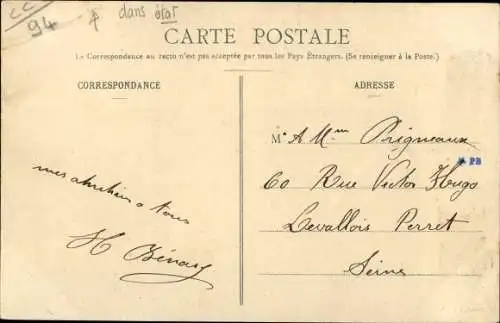 94 dans état
CARTE POSTALE
La Correspondance au recto n'est pas acceptée par tous les Pays Étrangers. (Se renseigner à la Poste.)
CORRESPONDANCE
ADRESSE
M A Mme Prigneaux
PB
60 Rue Victor Hugo
Levallois Perret
Seine
mes a tous
H Bénard